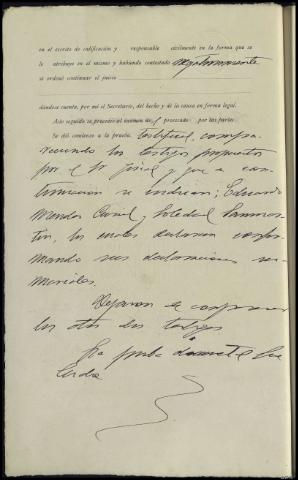 en el escrito de calificación y responsable civilmente en la forma que se
le atribuye en el mismo y habiendo contestado negativamente
se ordenó continuar el juicio
dándose cuenta, por mí el Secretario, del hecho y de la causa en forma legal.
Acto seguido se procedió al exámen del procesado por las partes.
Se dió comienzo a la prueba testifical, compa-
reciendo los testigos propuestos
por el Sr Fiscal y que a con-
tinuación se indican; Eduardo
Mendos y Soledad
tin, los cuales declaran confir-
mando sus declaraciones su-
mariales.
Dejaron de comparecer
los otros dos testigos
La prueba documental